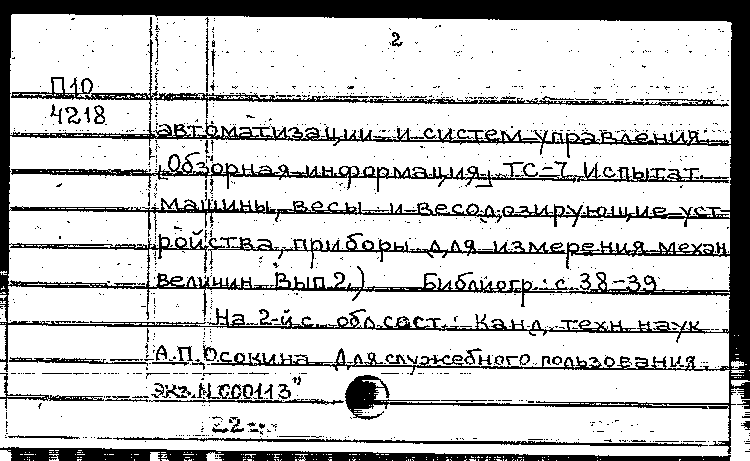 2
П10
4218
автоматизации и систем управления.
„Обзорная информация„ ТС-7, Испытат.
машины, весы и весодозирующие уст-
ройства, приборы для измерения механ
величин. Вып 2.) Библиогр.: с. 38-39
На 2-й с. обл. сост.: Канд. техн. наук
А.П. Осокина Для служебного пользования.
экз. N 000113"
22